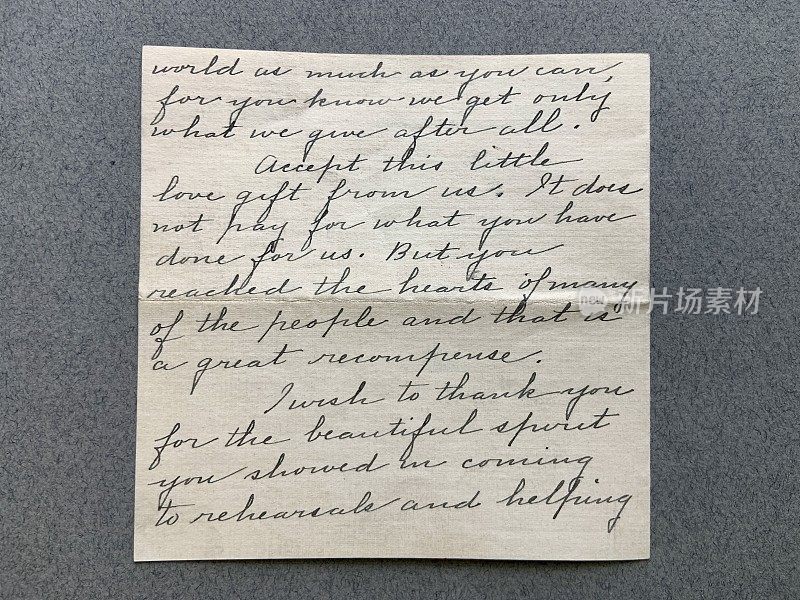 world as much as you can,
for you know we get only
what we give after all.
Accept this little
love gift from us. It does
not pay for what you have
done for us. But you
reached the hearts of many
of the people and that is
a great recompense.
I wish to thank you
for the beautiful spirit
you showed in coming
to rehearsals and helping
new 新片场素材